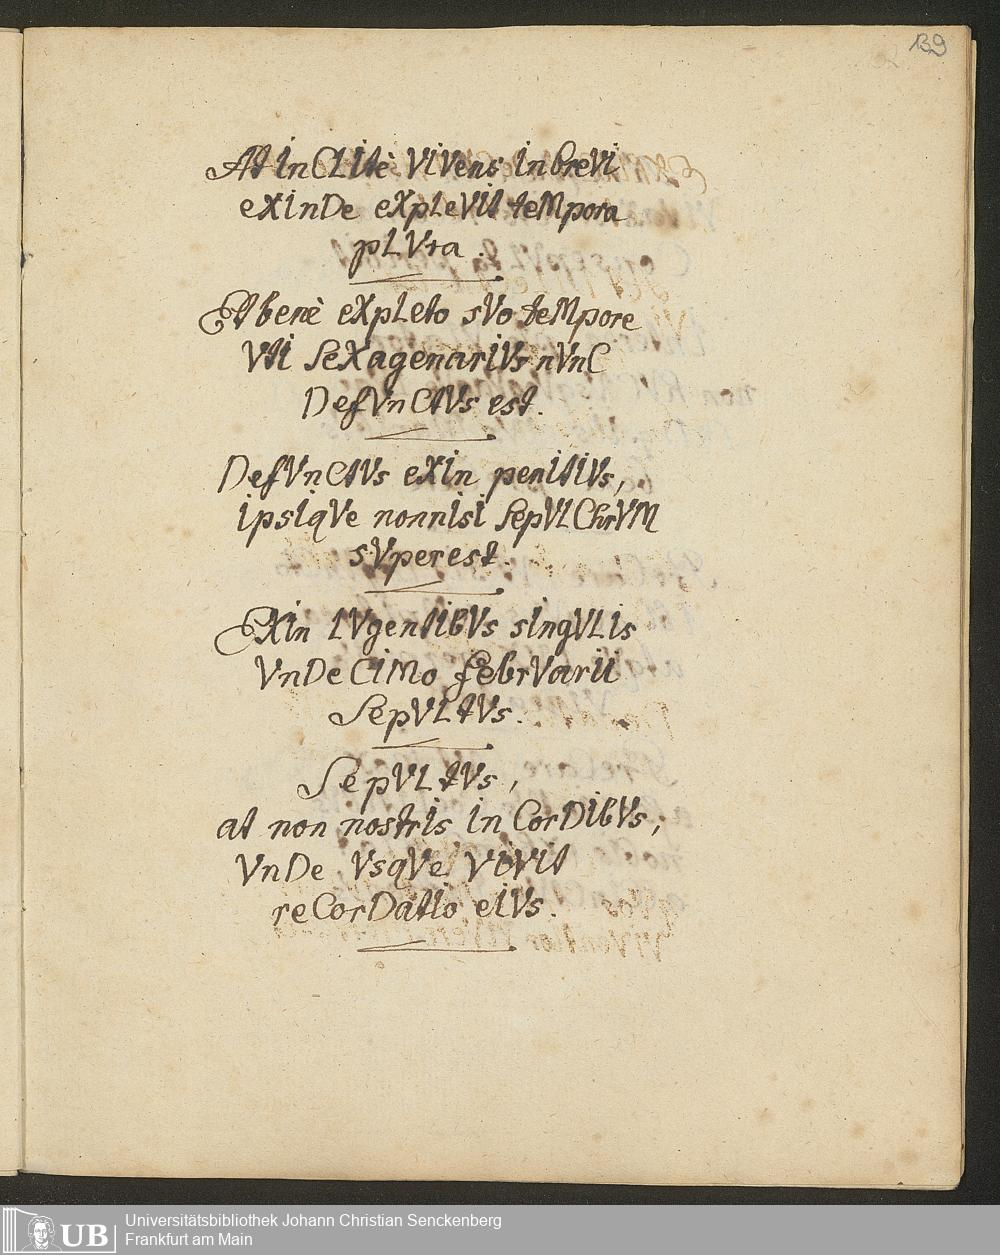 139
At InCLItè VIVens In breVI
eXInDe eXpLeVIt teMpora
pLVra.
At benè eXpLeto sVo teMpore
VtI SeXagenarIVs nVnC
DefVnCtVs est.
DefVnCtVs eXIn penItIVs,
IpsIqVe nonnIsI SepVLChrVM
sVperest.
EXIn LVgentIbVs sIngVLIs
VnDeCIMo febrVarII
SepVLtVs.
SepVLtVs,
at non nostrIs In CorDIbVs;
VnDe VsqVe VIVIt
reCorDatIo eIVs.
UB
Universitätsbibliothek Johann Christian Senckenberg
Frankfurt am Main